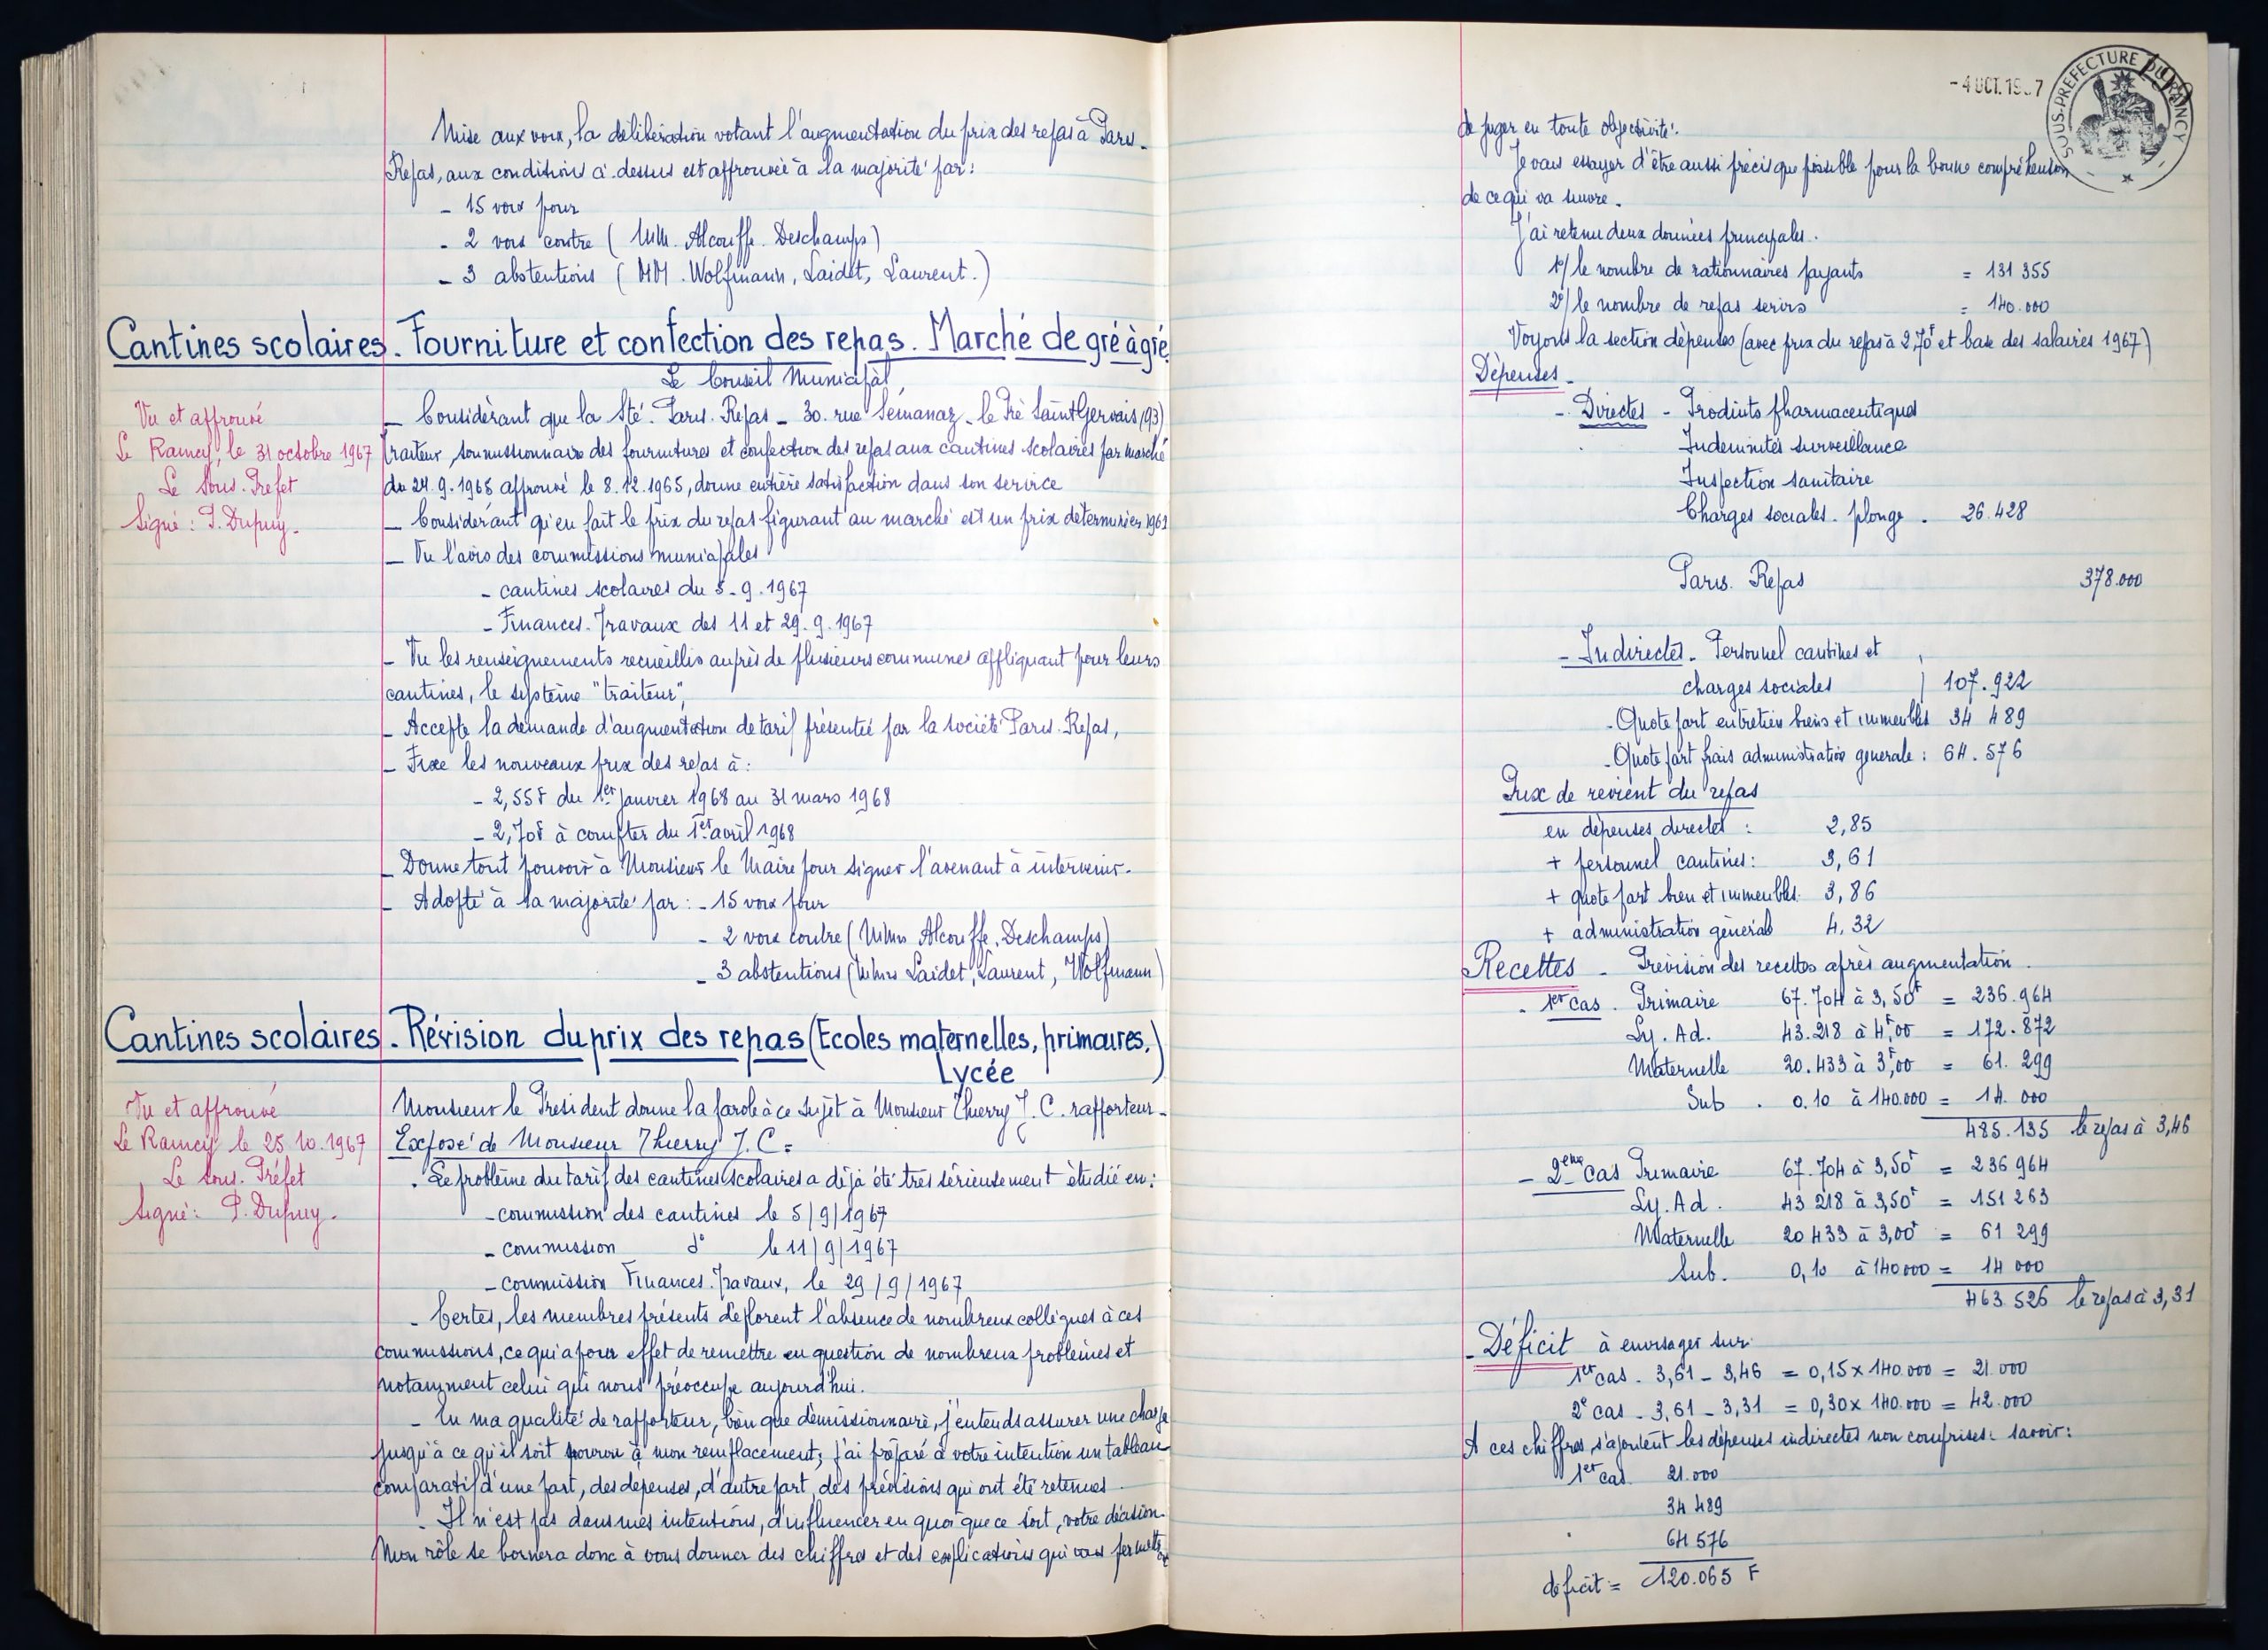 Mise aux voix, la délibération votant l'augmentation du prix des repas à Paris-
Repas, aux conditions ci-dessus est approuvée à la majorité par:
- 15 voix pour
- 2 voix contre (MM. Alcouffe. Deschamps)
- 3 abstentions (MM. Wolfmann, Laidet, Laurent.)
Cantines scolaires. Fourniture et confection des repas. Marché de gré à gré
Le Conseil Municipal,
Vu et approuvé
Le Raincy, le 31 octobre 1967
Le Sous-Préfet
Signé: P. Dupuy.
- Considérant que la Sté. Paris. Repas - 30. rue Sémanaz - le Pré Saint Gervais (93)
traiteur, soumissionnaire des fournitures et confection des repas aux cantines scolaires par marché
du 24.9.1965 approuvé le 8.12.1965, donne entière satisfaction dans son service
- Considérant qu'en fait le prix du repas figurant au marché est un prix déterminé en 1961
- Vu l'avis des commissions municipales
- cantines scolaires du 5-9.1967
- Finances. Travaux des 11 et 29.9.1967
- Vu les renseignements recueillis auprès de plusieurs communes appliquant pour leurs
cantines, le système "traiteur",
- Accepte la demande d'augmentation de tarif présentée par la société Paris. Repas,
- Fixe les nouveaux prix des repas à:
- 2,55F du 1er janvier 1968 au 31 mars 1968
- 2,70F à compter du 1er avril 1968
- Donne tout pouvoir à Monsieur le Maire pour signer l'avenant à intervenir.
- Adopté à la majorité par: - 15 voix pour
- 2 voix contre (Mmrs Alcouffe. Deschamps)
- 3 abstentions (Mmrs Laidet, Laurent, Wolfmann)
Cantines scolaires. Révision du prix des repas (Ecoles maternelles, primaires,)
Lycée
Vu et approuvé
Le Raincy le 25.10.1967
Le Sous. Préfet
Signé: P. Dupuy.
Monsieur le Président donne la parole à ce sujet à Monsieur Thierry J.C. rapporteur-
Exposé de Monsieur Thierry J.C =
. Le problème du tarif des cantines scolaires a déjà été très sérieusement étudié en:
- commission des cantines le 5/9/1967
- commission d° le 11/9/1967
- commission Finances. Travaux, le 29/9/1967
- Certes, les membres présents déplorent l'absence de nombreux collègues à ces
commissions, ce qui a pour effet de remettre en question de nombreux problèmes et
notamment celui qui nous préoccupe aujourd'hui.
- En ma qualité de rapporteur, bien que démissionnaire, j'entends assurer une charge
jusqu'à ce qu'il soit pourvu à mon remplacement; j'ai préparé à votre intention un tableau
comparatif d'une part, des dépenses, d'autre part, des prévisions qui ont été retenues.
- Il n'est pas dans mes intentions, d'influencer en quoi que ce soit, votre décision.
Mon rôle se bornera donc à vous donner des chiffres et des explications qui vous permettre
- 4 OCT. 19 7
SOUS-PREFECTURE DU RAINCY
de juger en toute objectivité.
Je vais essayer d'être aussi précis que possible pour la bonne compréhension
de ce qui va suivre.
J'ai retenu deux données principales.
1°/ le nombre de rationnaires payants = 131 355
2°/ le nombre de repas servis = 140.000
Voyons la section dépenses (avec prix du repas à 2,70F et base des salaires 1967)
Dépenses -
- Directes - Produits pharmaceutiques
Indemnités surveillance
Inspection sanitaire
Charges sociales. plonge. 26.428
Paris. Repas 378.000
- Indirectes - Personnel cantines et
charges sociales ) 107.922
- Quote part entretien biens et immeubles 34 489
- Quote part frais administration générale: 64.576
Prix de revient du repas
en dépenses directes: 2,85
+ personnel cantines: 3,61
+ quote part bien et immeubles: 3,86
+ administration général 4,32
Recettes - Prévision des recettes après augmentation.
- 1er cas. Primaire 67.704 à 3,50F = 236.964
Ly. Ad. 43.218 à 4F,00 = 172.872
Maternelle 20.433 à 3F,00 = 61.299
Sub. 0.10 à 140.000 = 14.000
485.135 le repas à 3,46
- 2ème cas Primaire 67.704 à 3,50F = 236 964
Ly. Ad. 43 218 à 3,50F = 151 263
Maternelle 20 433 à 3,00F = 61 299
Sub. 0,10 à 140 000 = 14 000
463.526 le repas à 3,31
- Déficit à envisager sur:
1er cas. 3,61 - 3,46 = 0,15 x 140.000 = 21.000
2e cas - 3,61 - 3,31 = 0,30 x 140.000 = 42.000
A ces chiffres, s'ajoutent les dépenses indirectes non comprises: savoir:
1er cas. 21.000
34 489
64 576
déficit = 120.065 F